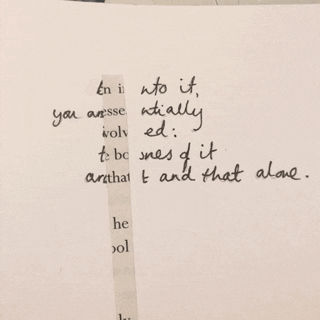 en into it,
you are essentially
volved:
the bones of it
and that and that alone.
he
ool